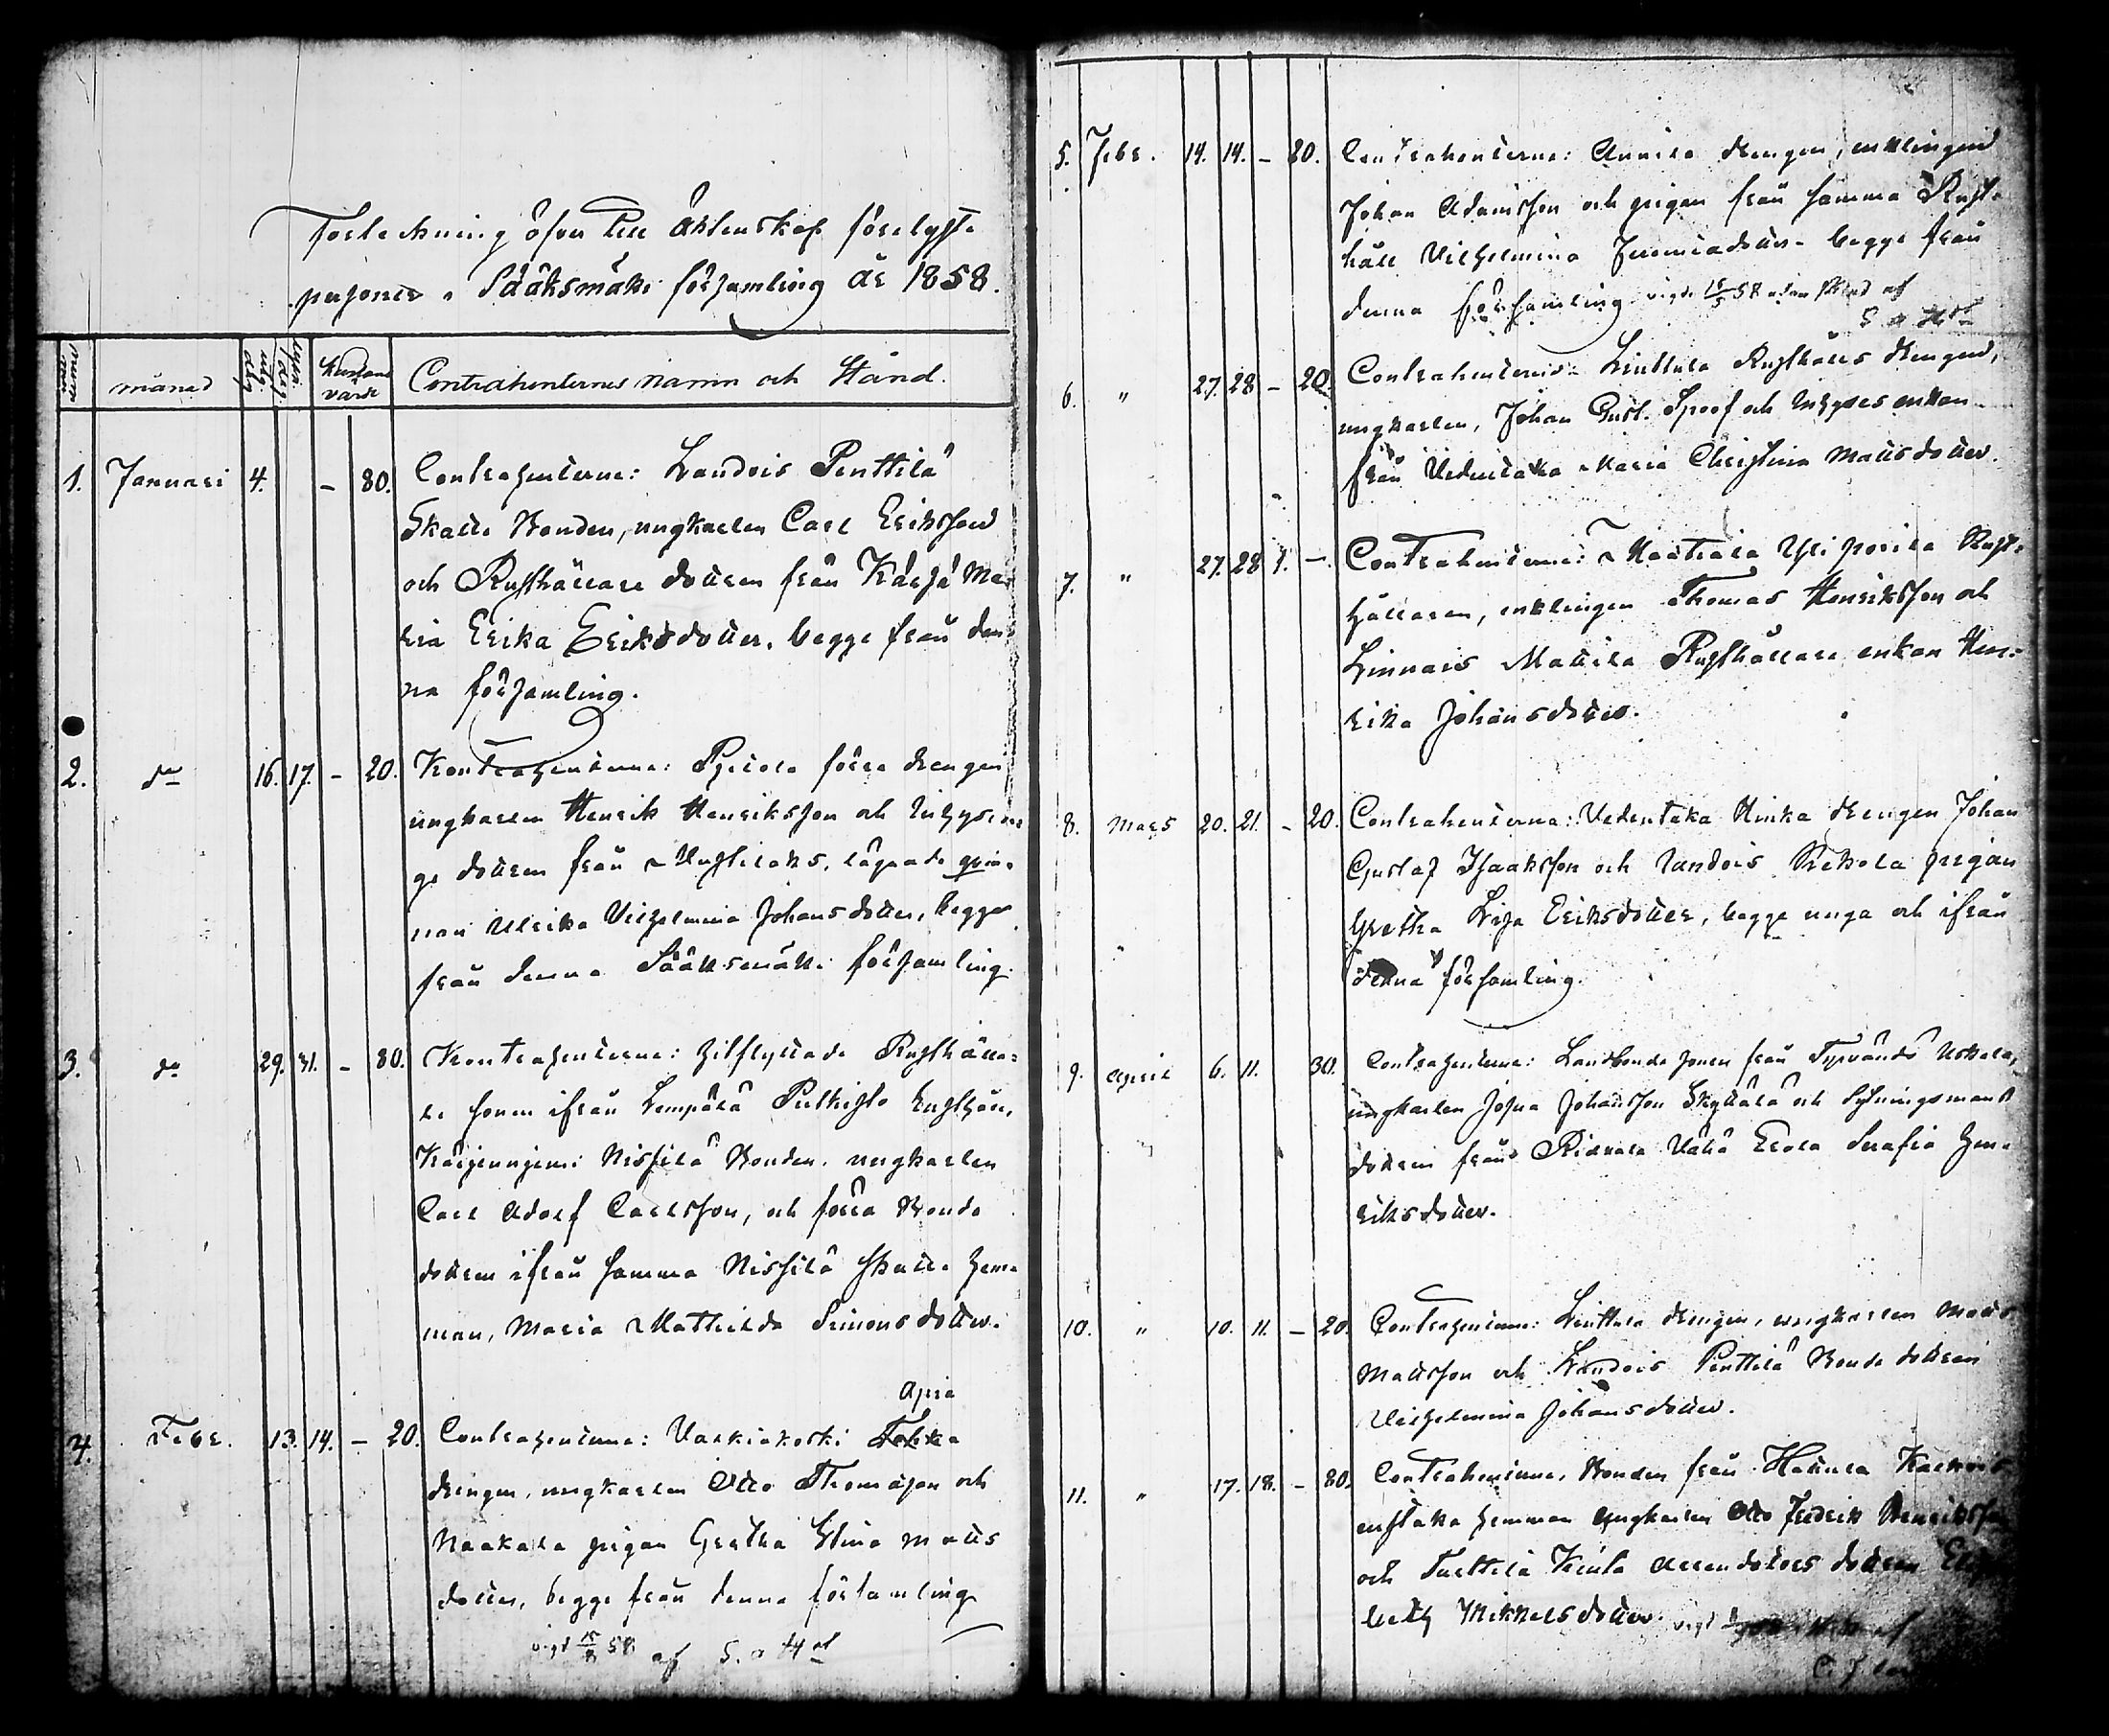 Förteckning öfver till äktenskap förelyste
personer i Sääksmäki församling år 1858.
månad
Contrahenternes namn och Stånd.
1. Januari 4. – 80. Contrahenterne: Laudois Penttilä
Skatte Bonden, ungkarlen Carl Eriksson
och Rusthållare dottren från Kärjä Ma-
ria Erika Eriksdotter, begge från den-
na församling.
2. do 16. 17. – 20. Kontrahenterne: förra drengen
ungkarlen Henrik Henriksson och Inhyses
dottren från
Ulrika Vilhelmina Johansdotter, begge
från denna Sääksmäki församling.
3. do 29. 31. – 80. Kontrahenterne: hitflyttade Rusthålla-
re sonen ifrån Lempälä
Nissilä Bonden, ungkarlen
Carl Adolf Carlsson, och förra Bonde
dottren ifrån samma Nissilä skatte hem-
man, Maria Mathilda Simonsdotter.
4. Febr. 13. 14. – 20. Contrahenterne: Varkiakoski
drengen, ungkarlen Otto Thomasson och
Naakala pigan Gretha Stina Matts
dotter, begge från denna församling
vigd 58 af
5. Febr. 14. 14. – 80. Contrahenterne: Annila drengen, enklingen
Johan Adamsson och pigan från samma Rust-
håll Vilhelmina Jeremiadotter begge från
denna församling vigde 58 af
6. " 27. 28 – 20. Contrahenterne: Linttula Rusthålls drengen,
ungkarlen, Johan Gust. Spoof och Inhyses enkan
från Vedentaka Maria Christina Mattsdotter.
7. " 27. 28 1. – Contrahenterne: Maatiala Yli Rust-
hållaren, enklingen Thomas Henriksson och
Linnais Mattila Rusthållare enkan Hen-
rika Johansdotter.
8. Mars 20. 21. – 20. Contrahenterne: Vedentaka Hinka drengen Johan
Gustaf Isaaksson och Landois pigan
Gretha Lisa Eriksdotter, begge unga och ifrån
denna församling.
9. April 6. 11. 30. Contrahenterne: Landbonde sonen från Tyrvändö Uskala,
ungkarlen Josua Johansson Skyttälä och Sytningsmans
dottren från Ridvala Vähä Erola Serafia Hen-
riksdotter.
10. " 10. 11. – 20. Contrahenterne: Linttula drengen, ungkarlen Matts
Mattsson och Landois Penttilä Bonde dottren
Vilhelmina Johansdotter.
11. " 17. 18. – 80. Contrahenterne, Bonden från
enstaka hemman ungkarlen Otto Fredrik Henriksson
och Tarttila arrendators dottren
Mikkelsdotter. vigd